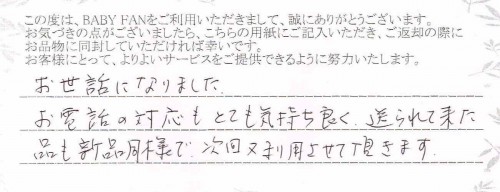 この度は、BABY FANをご利用いただきまして、誠にありがとうございます。
お気づきの点がございましたら、こちらの用紙にご記入いただき、ご返却の際に
お品物に同封していただければ幸いです。
お客様にとって、よりよいサービスをご提供できるように努力いたします。
お世話になりました。
お電話の対応もとても気持ち良く、送られて来た
品も新品同様で、次回又利用させて頂きます。